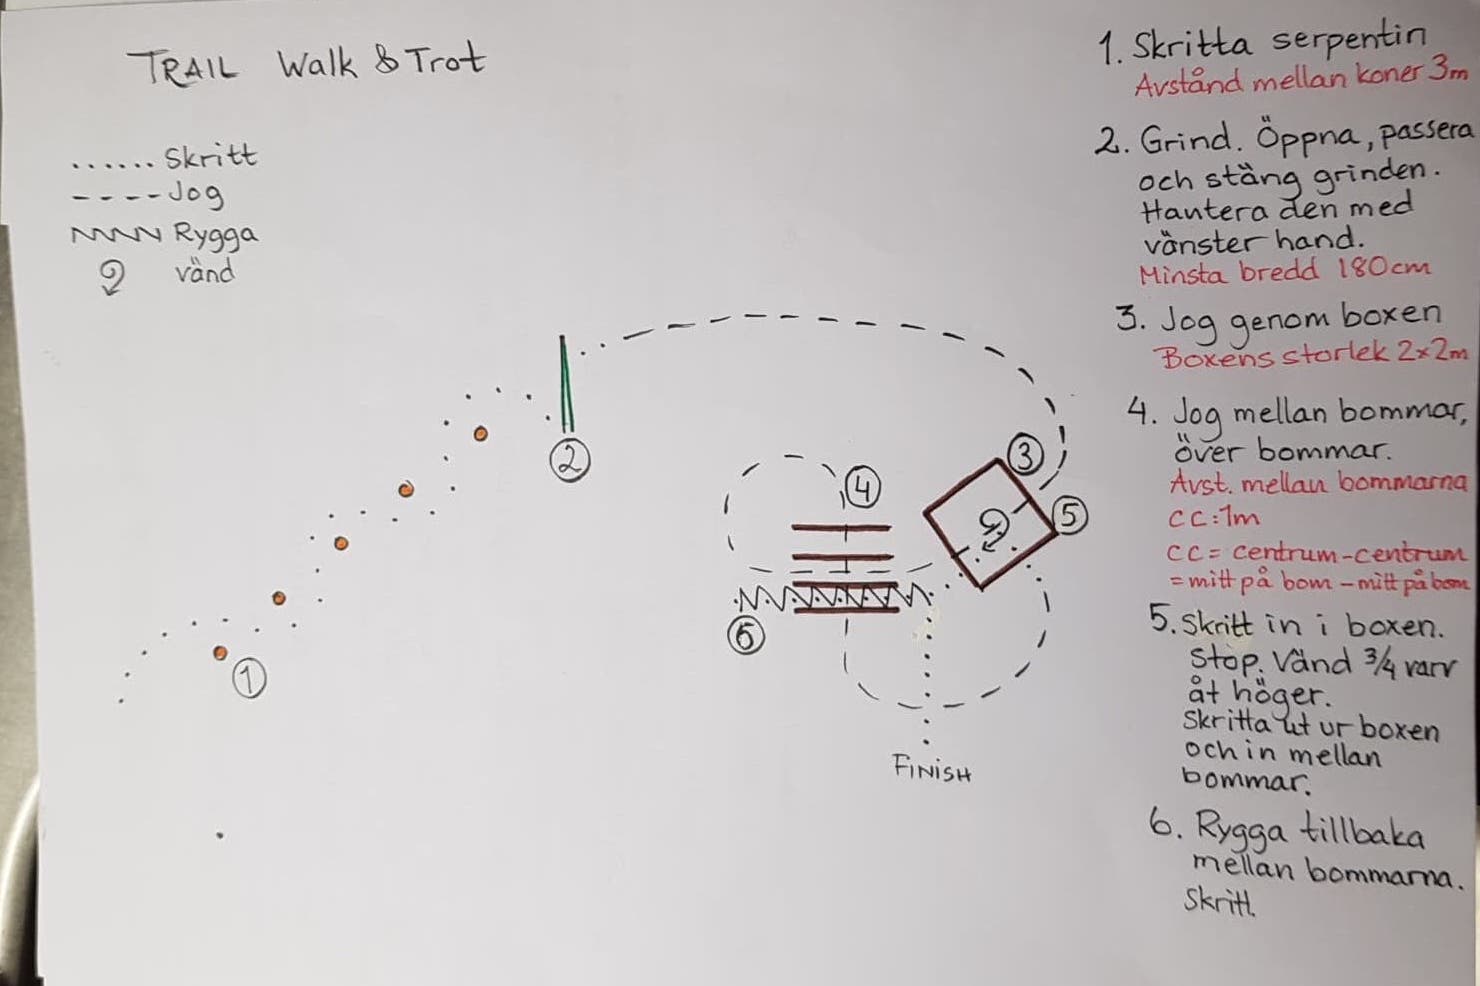 TRAIL Walk & Trot
...... Skritt
---- Jog
Rygga
vänd
1. Skritta serpentin
Avstånd mellan koner 3m
2. Grind. Öppna, passera
och stäng grinden.
Hantera den med
vänster hand.
Minsta bredd 180cm
3. Jog genom boxen
Boxens storlek 2x2m
4. Jog mellan bommar,
över bommar.
Avst. mellan bommarna
CC:1m
CC = centrum-centrum
=mitt på bom - mitt på bom
5. Skritt in i boxen.
Stop. Vänd 3/4 varv
åt höger.
Skritta ut ur boxen
och in mellan
bommar.
6. Rygga tillbaka
mellan bommarna.
Skritt.
2
3
4
5
6
1
FINISH